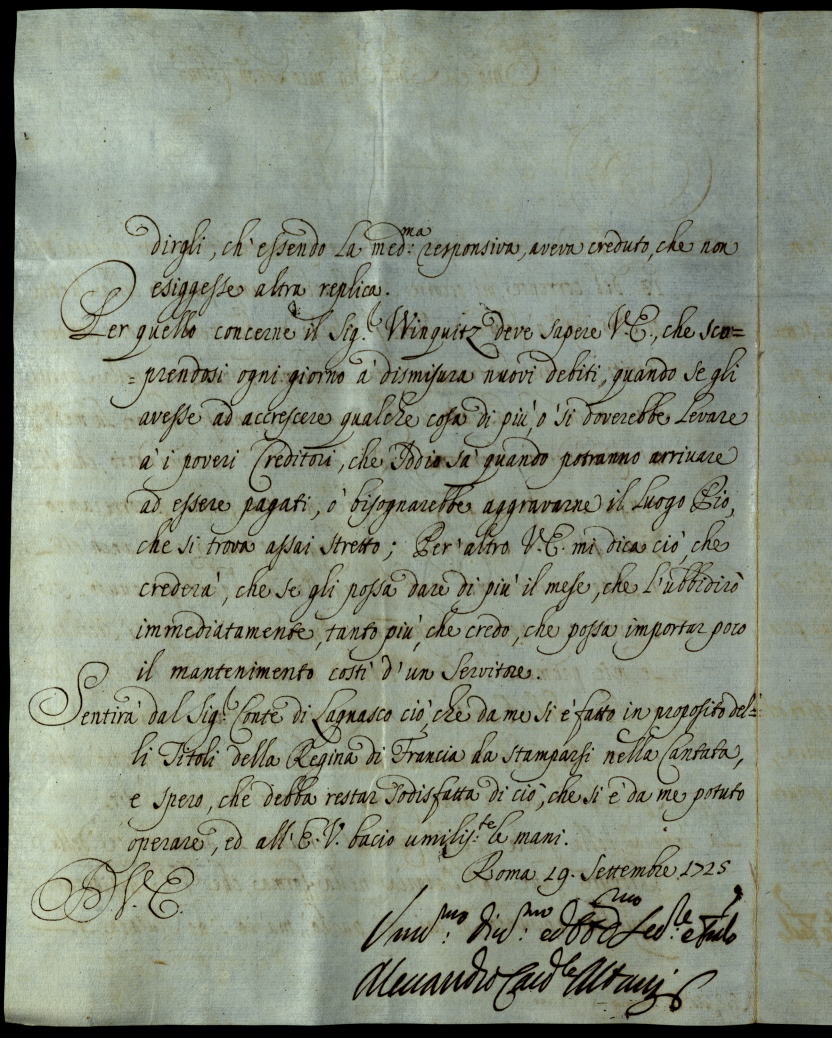 dirgli, ch'essendo la med:ma responsiva, aveva creduto, che non
esiggesse altra replica.
Per quello concerne il Sig.r Winguitz deve sapere V.E., che sco=
=prendosi ogni giorno à dismisura nuovi debiti, quando se gli
avesse ad accrescere qualche cosa di più, ò si doverebbe levare
à i poveri Creditori, che Iddio sà quando potranno arrivare
ad essere pagati, ò bisognarebbe aggravarne il Luogo Pio,
che si trova assai stretto; Per altro V.E. mi dica ciò, che
crederà, che se gli possa dare di più il mese, che l'ubbidirò
immediatamente, tanto più, che credo, che possa importar poco
il mantenimento costì d'un Servitore.
Sentirà dal Sig.r Conte di Lagnasco ciò, che da me si è fatto in proposito del=
li Titoli della Regina di Francia da stamparsi nella Cantata,
e spero, che debba restar sodisfatta di ciò, che si è da me potuto
operare, ed all'E.V. bacio umilis:te le mani.
Roma 19. Settembre 1725
V.E.
Um:mo Div:mo ed Obb:mo
Alessandro Card.le Albani